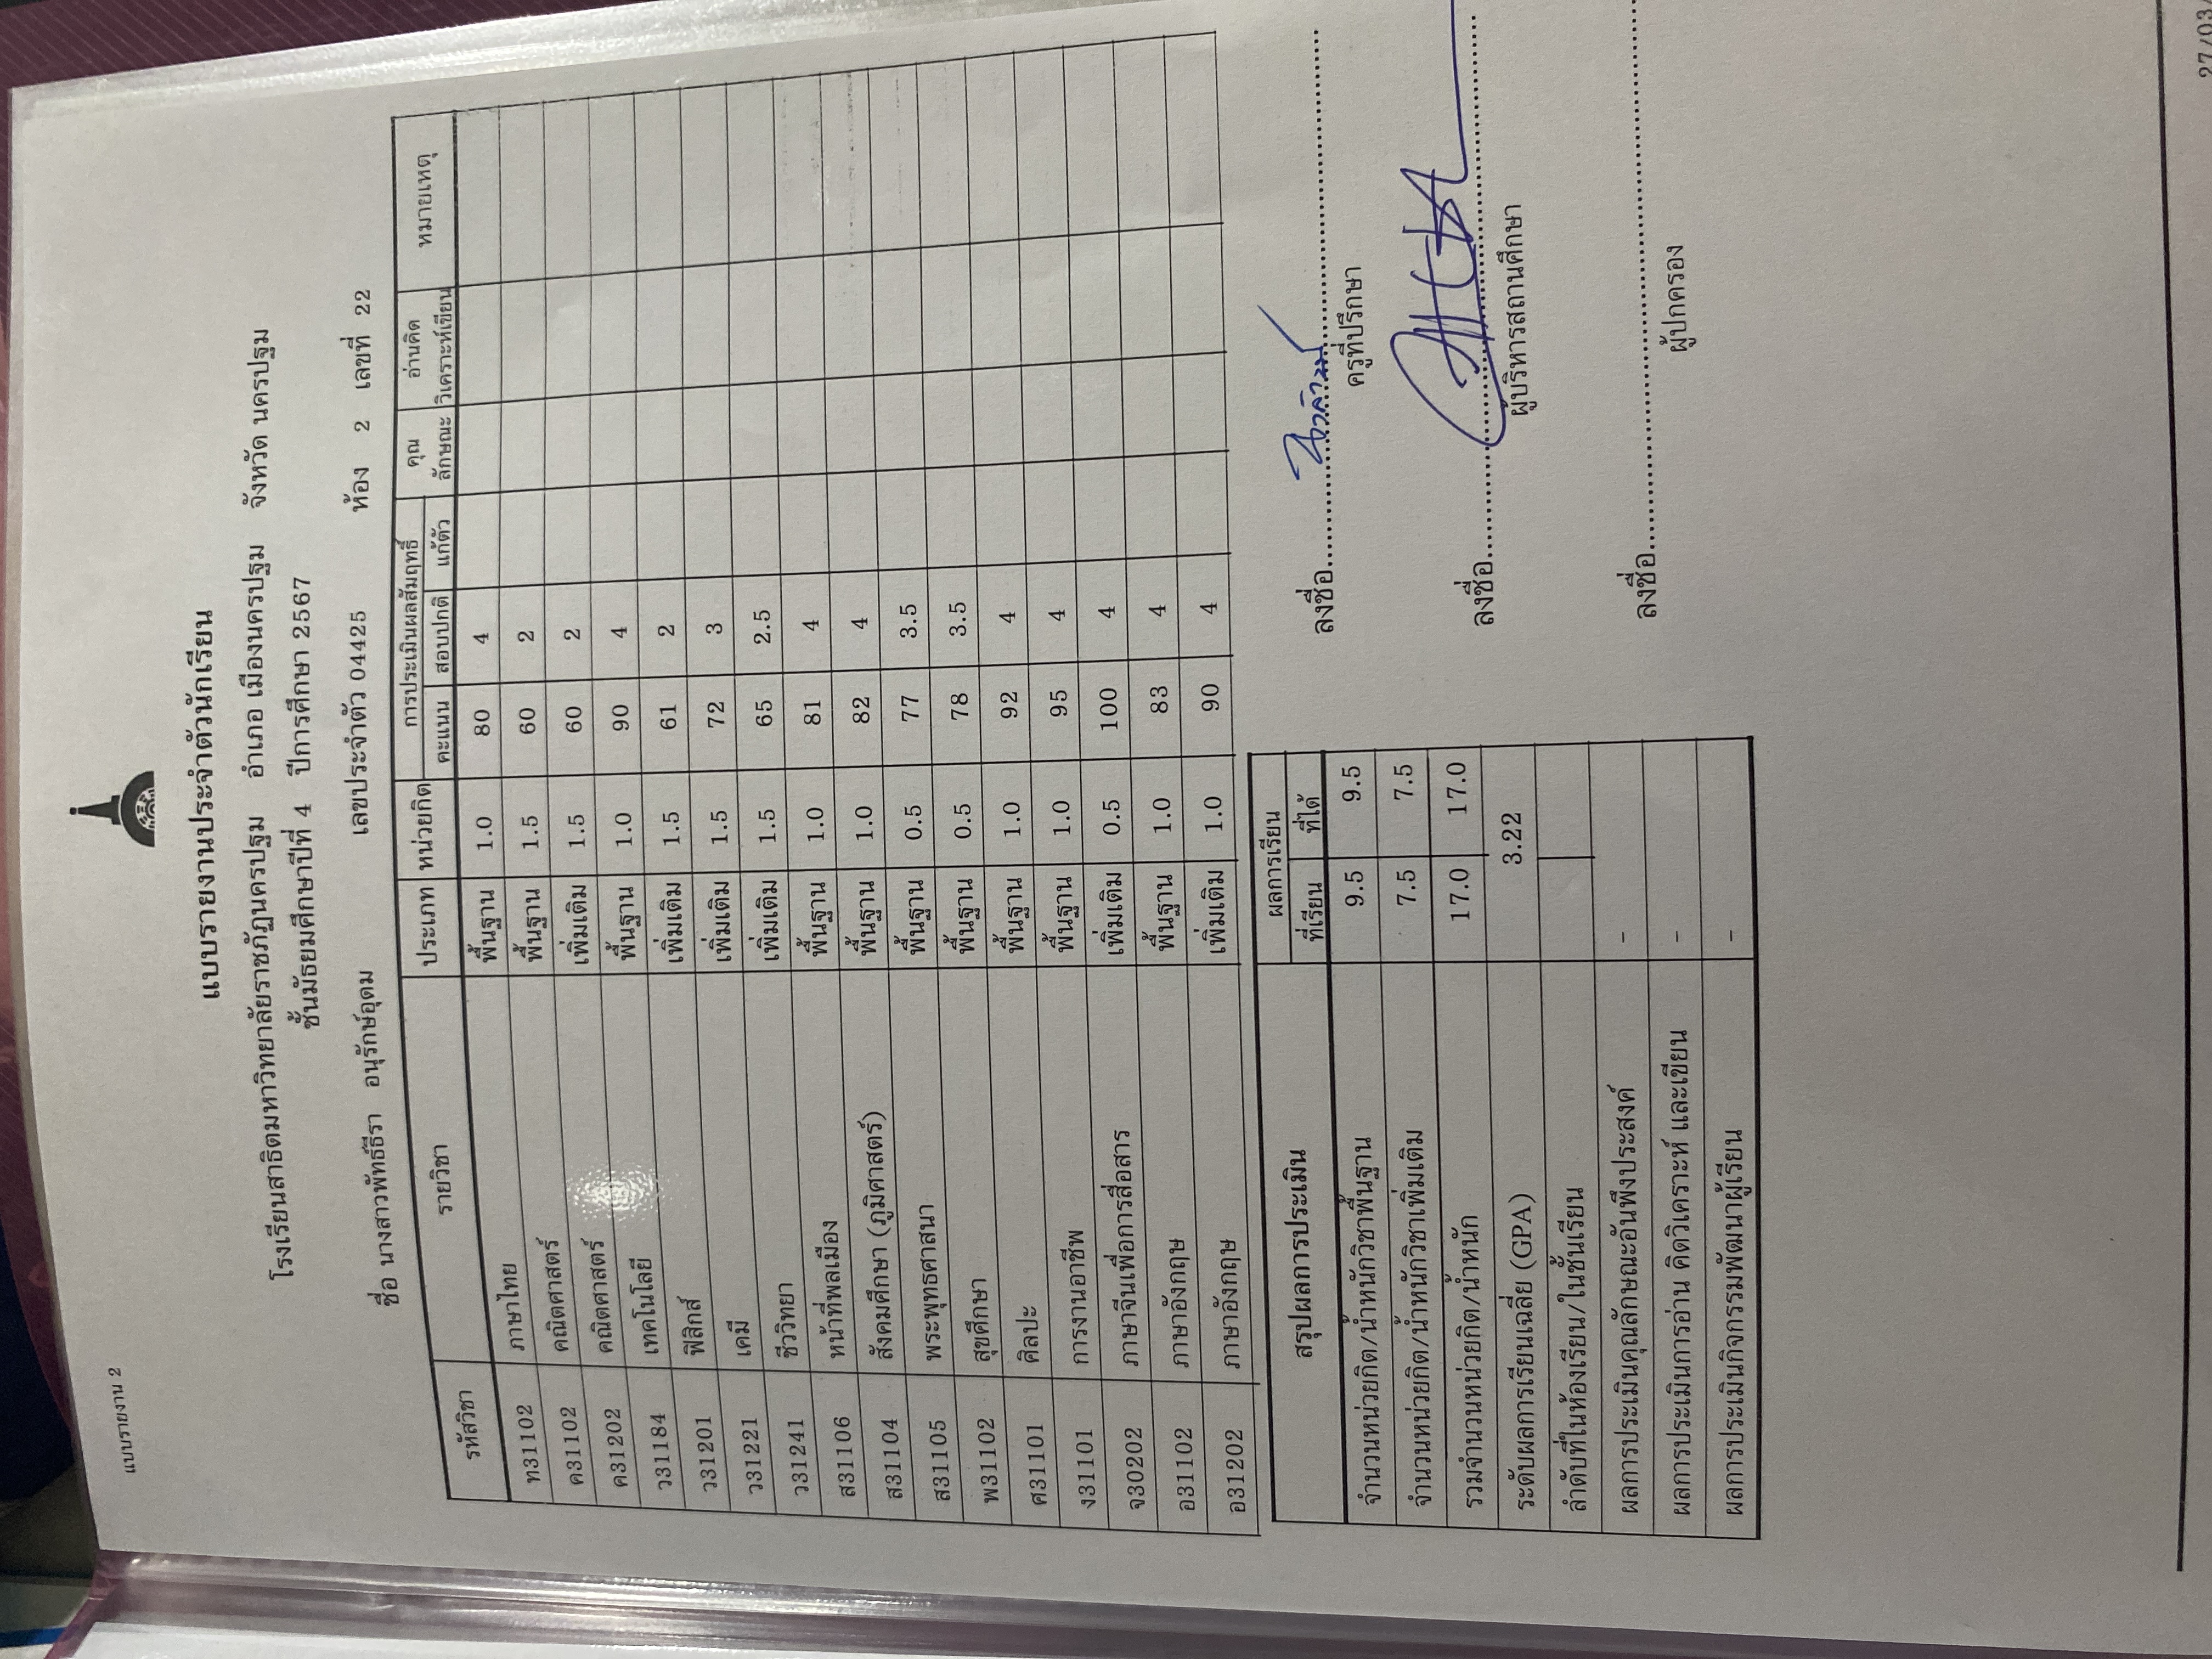 แบบรายงาน 2
แบบรายงานประจำตัวนักเรียน
โรงเรียนสาธิตมหาวิทยาลัยราชภัฏนครปฐม อำเภอ เมืองนครปฐม จังหวัด นครปฐม
ชั้นมัธยมศึกษาปีที่ 4 ปีการศึกษา 2567
ชื่อ นางสาวพัทธ์ธีรา อนุรักษ์อุดม เลขประจำตัว 04425 ห้อง 2 เลขที่ 22
รหัสวิชา รายวิชา ประเภท หน่วยกิต การประเมินผลสัมฤทธิ์ คุณลักษณะ อ่านคิดวิเคราะห์เขียน หมายเหตุ
คะแนน สอบปกติ แก้ตัว
ท31102 ภาษาไทย พื้นฐาน 1.0 80 4
ค31102 คณิตศาสตร์ พื้นฐาน 1.5 60 2
ค31202 คณิตศาสตร์ เพิ่มเติม 1.5 60 2
ว31184 เทคโนโลยี พื้นฐาน 1.0 90 4
ว31201 ฟิสิกส์ เพิ่มเติม 1.5 61 2
ว31221 เคมี เพิ่มเติม 1.5 72 3
ว31241 ชีววิทยา เพิ่มเติม 1.5 65 2.5
ส31106 หน้าที่พลเมือง พื้นฐาน 1.0 81 4
ส31104 สังคมศึกษา (ภูมิศาสตร์) พื้นฐาน 1.0 82 4
ส31105 พระพุทธศาสนา พื้นฐาน 0.5 77 3.5
พ31102 สุขศึกษา พื้นฐาน 0.5 78 3.5
ศ31101 ศิลปะ พื้นฐาน 1.0 92 4
ง31101 การงานอาชีพ พื้นฐาน 1.0 95 4
จ30202 ภาษาจีนเพื่อการสื่อสาร เพิ่มเติม 0.5 100 4
อ31102 ภาษาอังกฤษ พื้นฐาน 1.0 83 4
อ31202 ภาษาอังกฤษ เพิ่มเติม 1.0 90 4
สรุปผลการประเมิน ผลการเรียน
ที่เรียน ที่ได้
จำนวนหน่วยกิต/น้ำหนักวิชาพื้นฐาน 9.5 9.5
จำนวนหน่วยกิต/น้ำหนักวิชาเพิ่มเติม 7.5 7.5
รวมจำนวนหน่วยกิต/น้ำหนัก 17.0 17.0
ระดับผลการเรียนเฉลี่ย (GPA) 3.22
ลำดับที่ในห้องเรียน/ในชั้นเรียน
ผลการประเมินคุณลักษณะอันพึงประสงค์ -
ผลการประเมินการอ่าน คิดวิเคราะห์ และเขียน -
ผลการประเมินกิจกรรมพัฒนาผู้เรียน -
ลงชื่อ
ครูที่ปรึกษา
ลงชื่อ
ผู้บริหารสถานศึกษา
ลงชื่อ
ผู้ปกครอง
27/03/